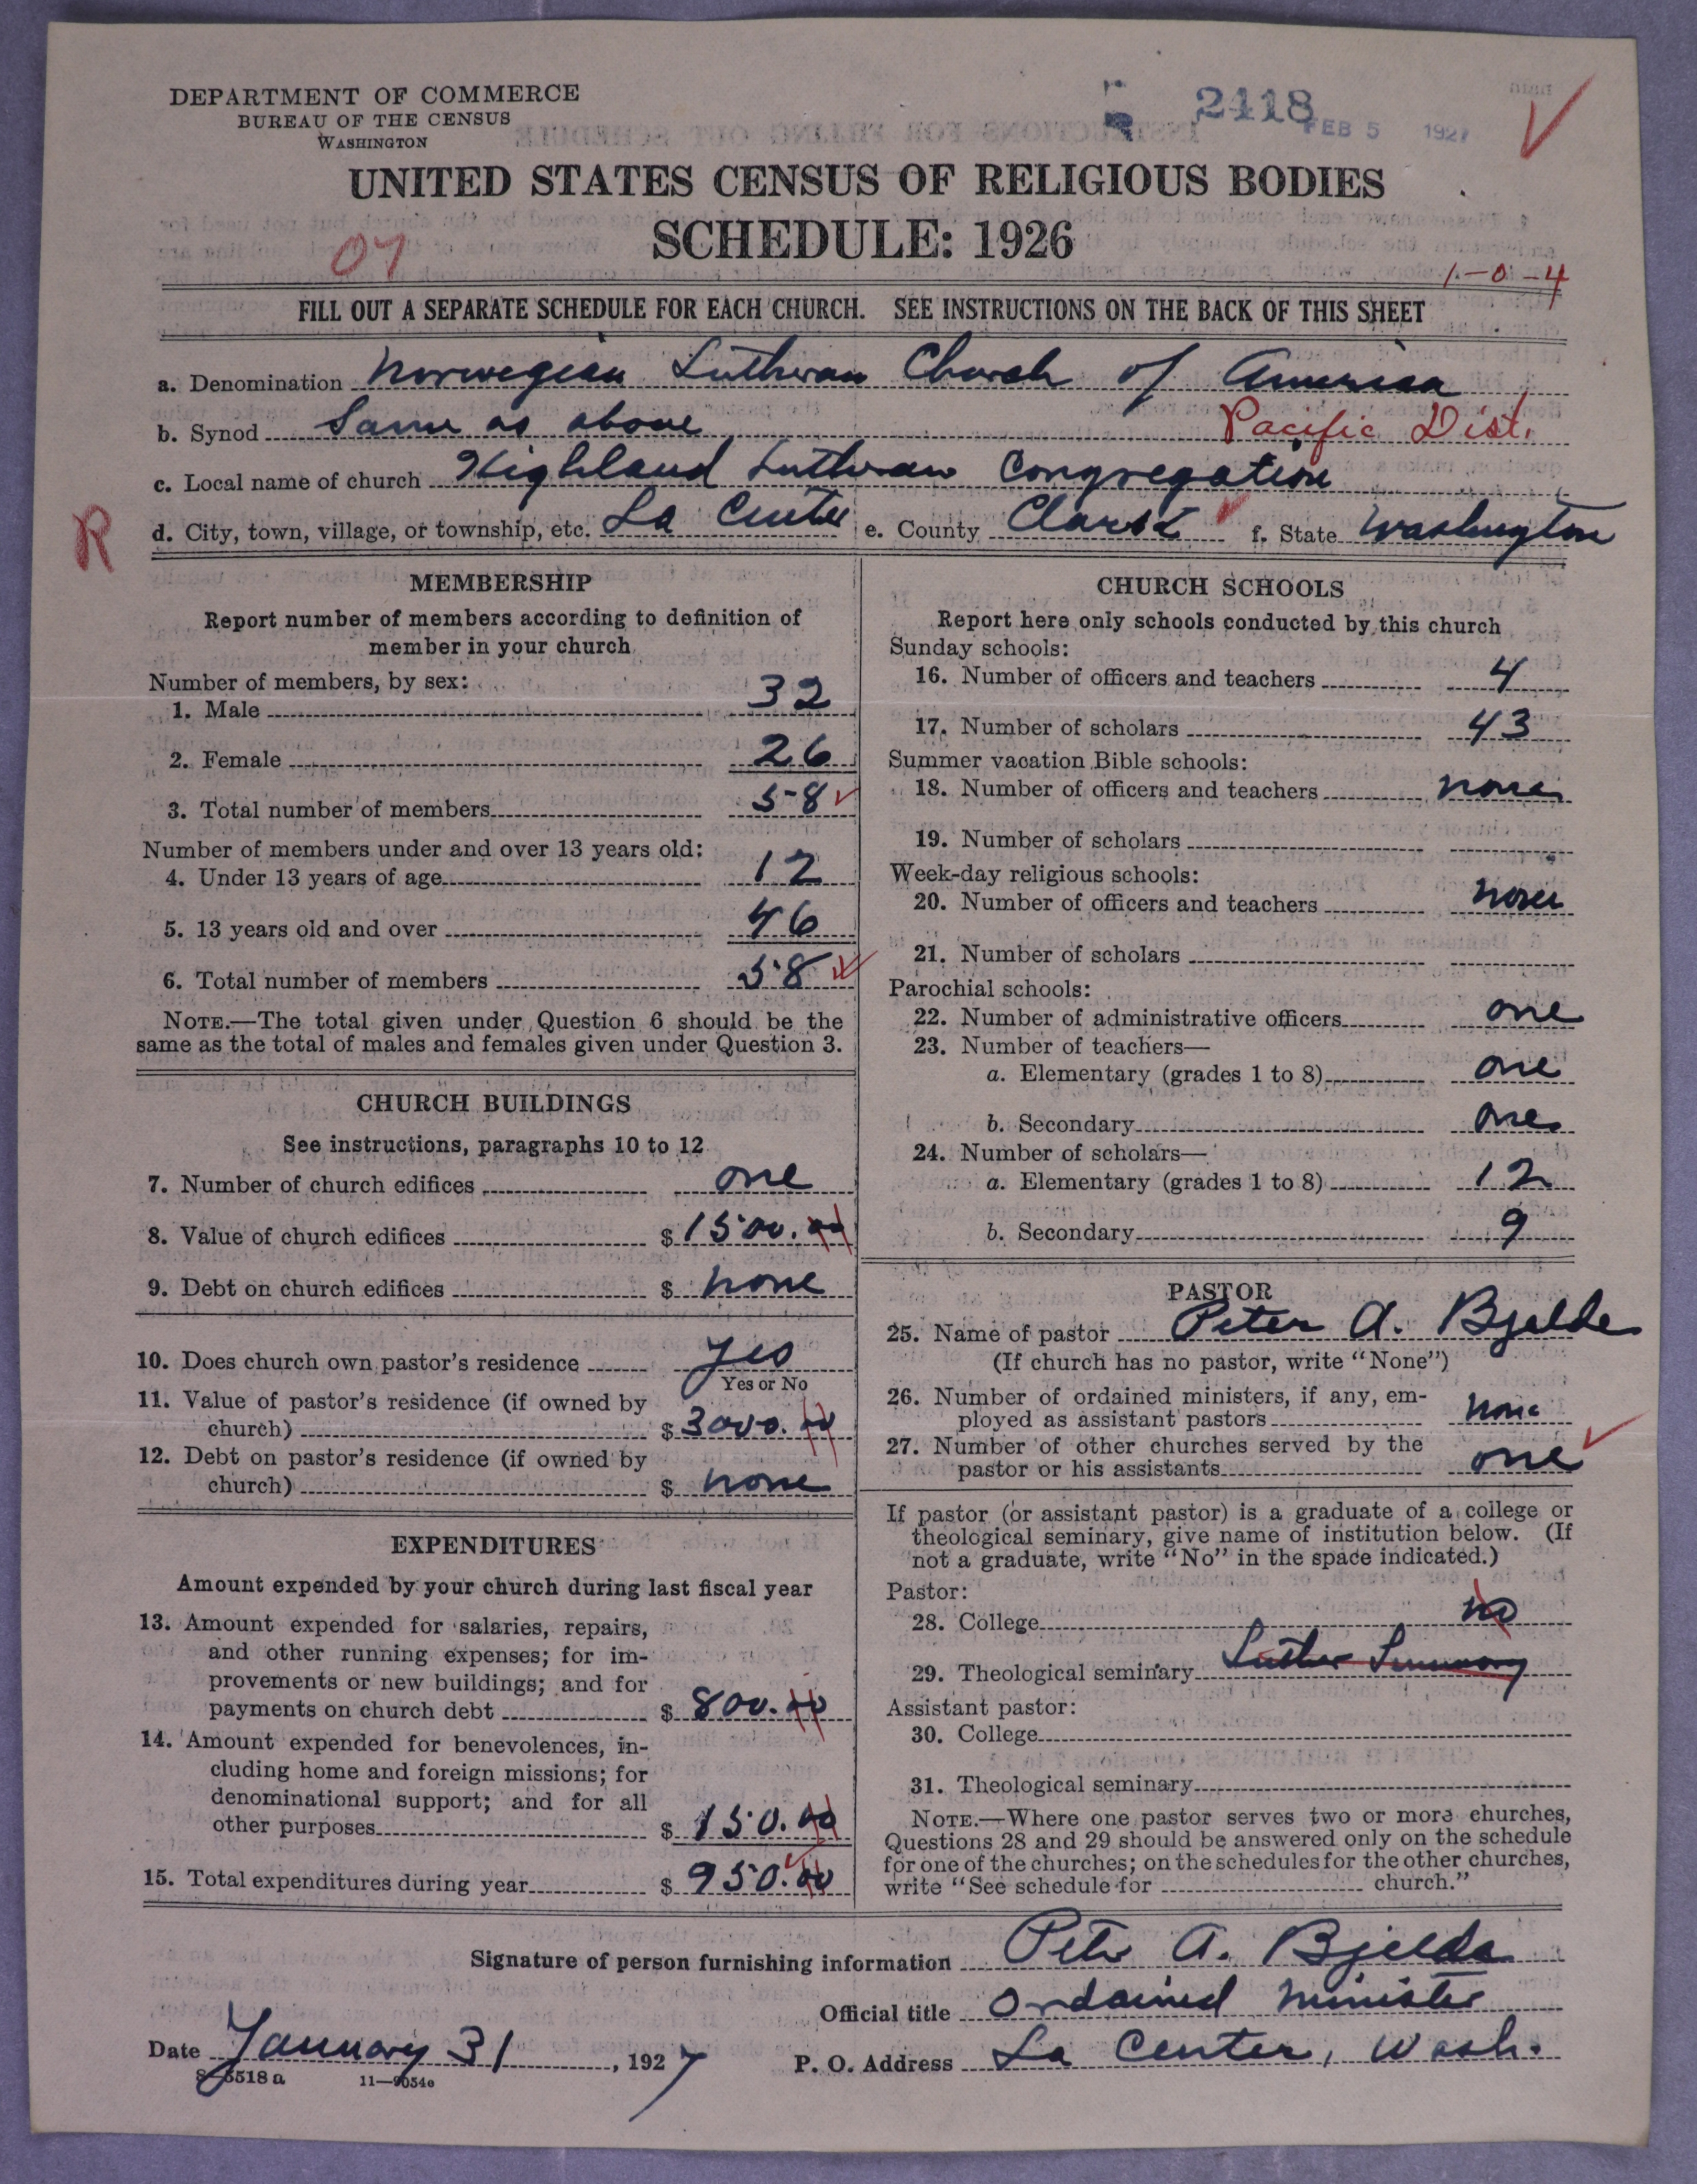 DEPARTMENT OF COMMERCE
BUREAU OF THE CENSUS
WASHINGTON
2418
FEB 5 1927
UNITED STATES CENSUS OF RELIGIOUS BODIES
SCHEDULE: 1926
07
1-0-4
FILL OUT A SEPARATE SCHEDULE FOR EACH CHURCH. SEE INSTRUCTIONS ON THE BACK OF THIS SHEET
a. Denomination Norwegian Lutheran Church of America
b. Synod Same as above Pacific Dist.
c. Local name of church Highland Lutheran Congregation
R
d. City, town, village, or township, etc. La Center e. County Clark f. State Washington
MEMBERSHIP
Report number of members according to definition of
member in your church
Number of members, by sex:
1. Male 32
2. Female 26
3. Total number of members 58
Number of members under and over 13 years old:
4. Under 13 years of age 12
5. 13 years old and over 46
6. Total number of members 58
NOTE.—The total given under Question 6 should be the
same as the total of males and females given under Question 3.
CHURCH BUILDINGS
See instructions, paragraphs 10 to 12
7. Number of church edifices one
8. Value of church edifices $ 1500.00
9. Debt on church edifices $ none
10. Does church own pastor's residence Yes
Yes or No
11. Value of pastor's residence (if owned by
church) $ 3000.00
12. Debt on pastor's residence (if owned by
church) $ none
EXPENDITURES
Amount expended by your church during last fiscal year
13. Amount expended for salaries, repairs,
and other running expenses; for im-
provements or new buildings; and for
payments on church debt $ 800.00
14. Amount expended for benevolences, in-
cluding home and foreign missions; for
denominational support; and for all
other purposes $ 150.00
15. Total expenditures during year $ 950.00
CHURCH SCHOOLS
Report here only schools conducted by this church
Sunday schools:
16. Number of officers and teachers 4
17. Number of scholars 43
Summer vacation Bible schools:
18. Number of officers and teachers none
19. Number of scholars
Week-day religious schools:
20. Number of officers and teachers none
21. Number of scholars
Parochial schools:
22. Number of administrative officers one
23. Number of teachers—
a. Elementary (grades 1 to 8) one
b. Secondary one
24. Number of scholars—
a. Elementary (grades 1 to 8) 12
b. Secondary 9
PASTOR
25. Name of pastor Peter A. Bjelde
(If church has no pastor, write "None")
26. Number of ordained ministers, if any, em-
ployed as assistant pastors none
27. Number of other churches served by the
pastor or his assistants one
If pastor (or assistant pastor) is a graduate of a college or
theological seminary, give name of institution below. (If
not a graduate, write "No" in the space indicated.)
Pastor:
28. College no
29. Theological seminary Luther Seminary
Assistant pastor:
30. College
31. Theological seminary
NOTE.—Where one pastor serves two or more churches,
Questions 28 and 29 should be answered only on the schedule
for one of the churches; on the schedules for the other churches,
write "See schedule for church."
Signature of person furnishing information Peter A. Bjelde
Official title Ordained Minister
Date January 31, 1927
P. O. Address La Center, Wash.
8-5518 a 11—9054e